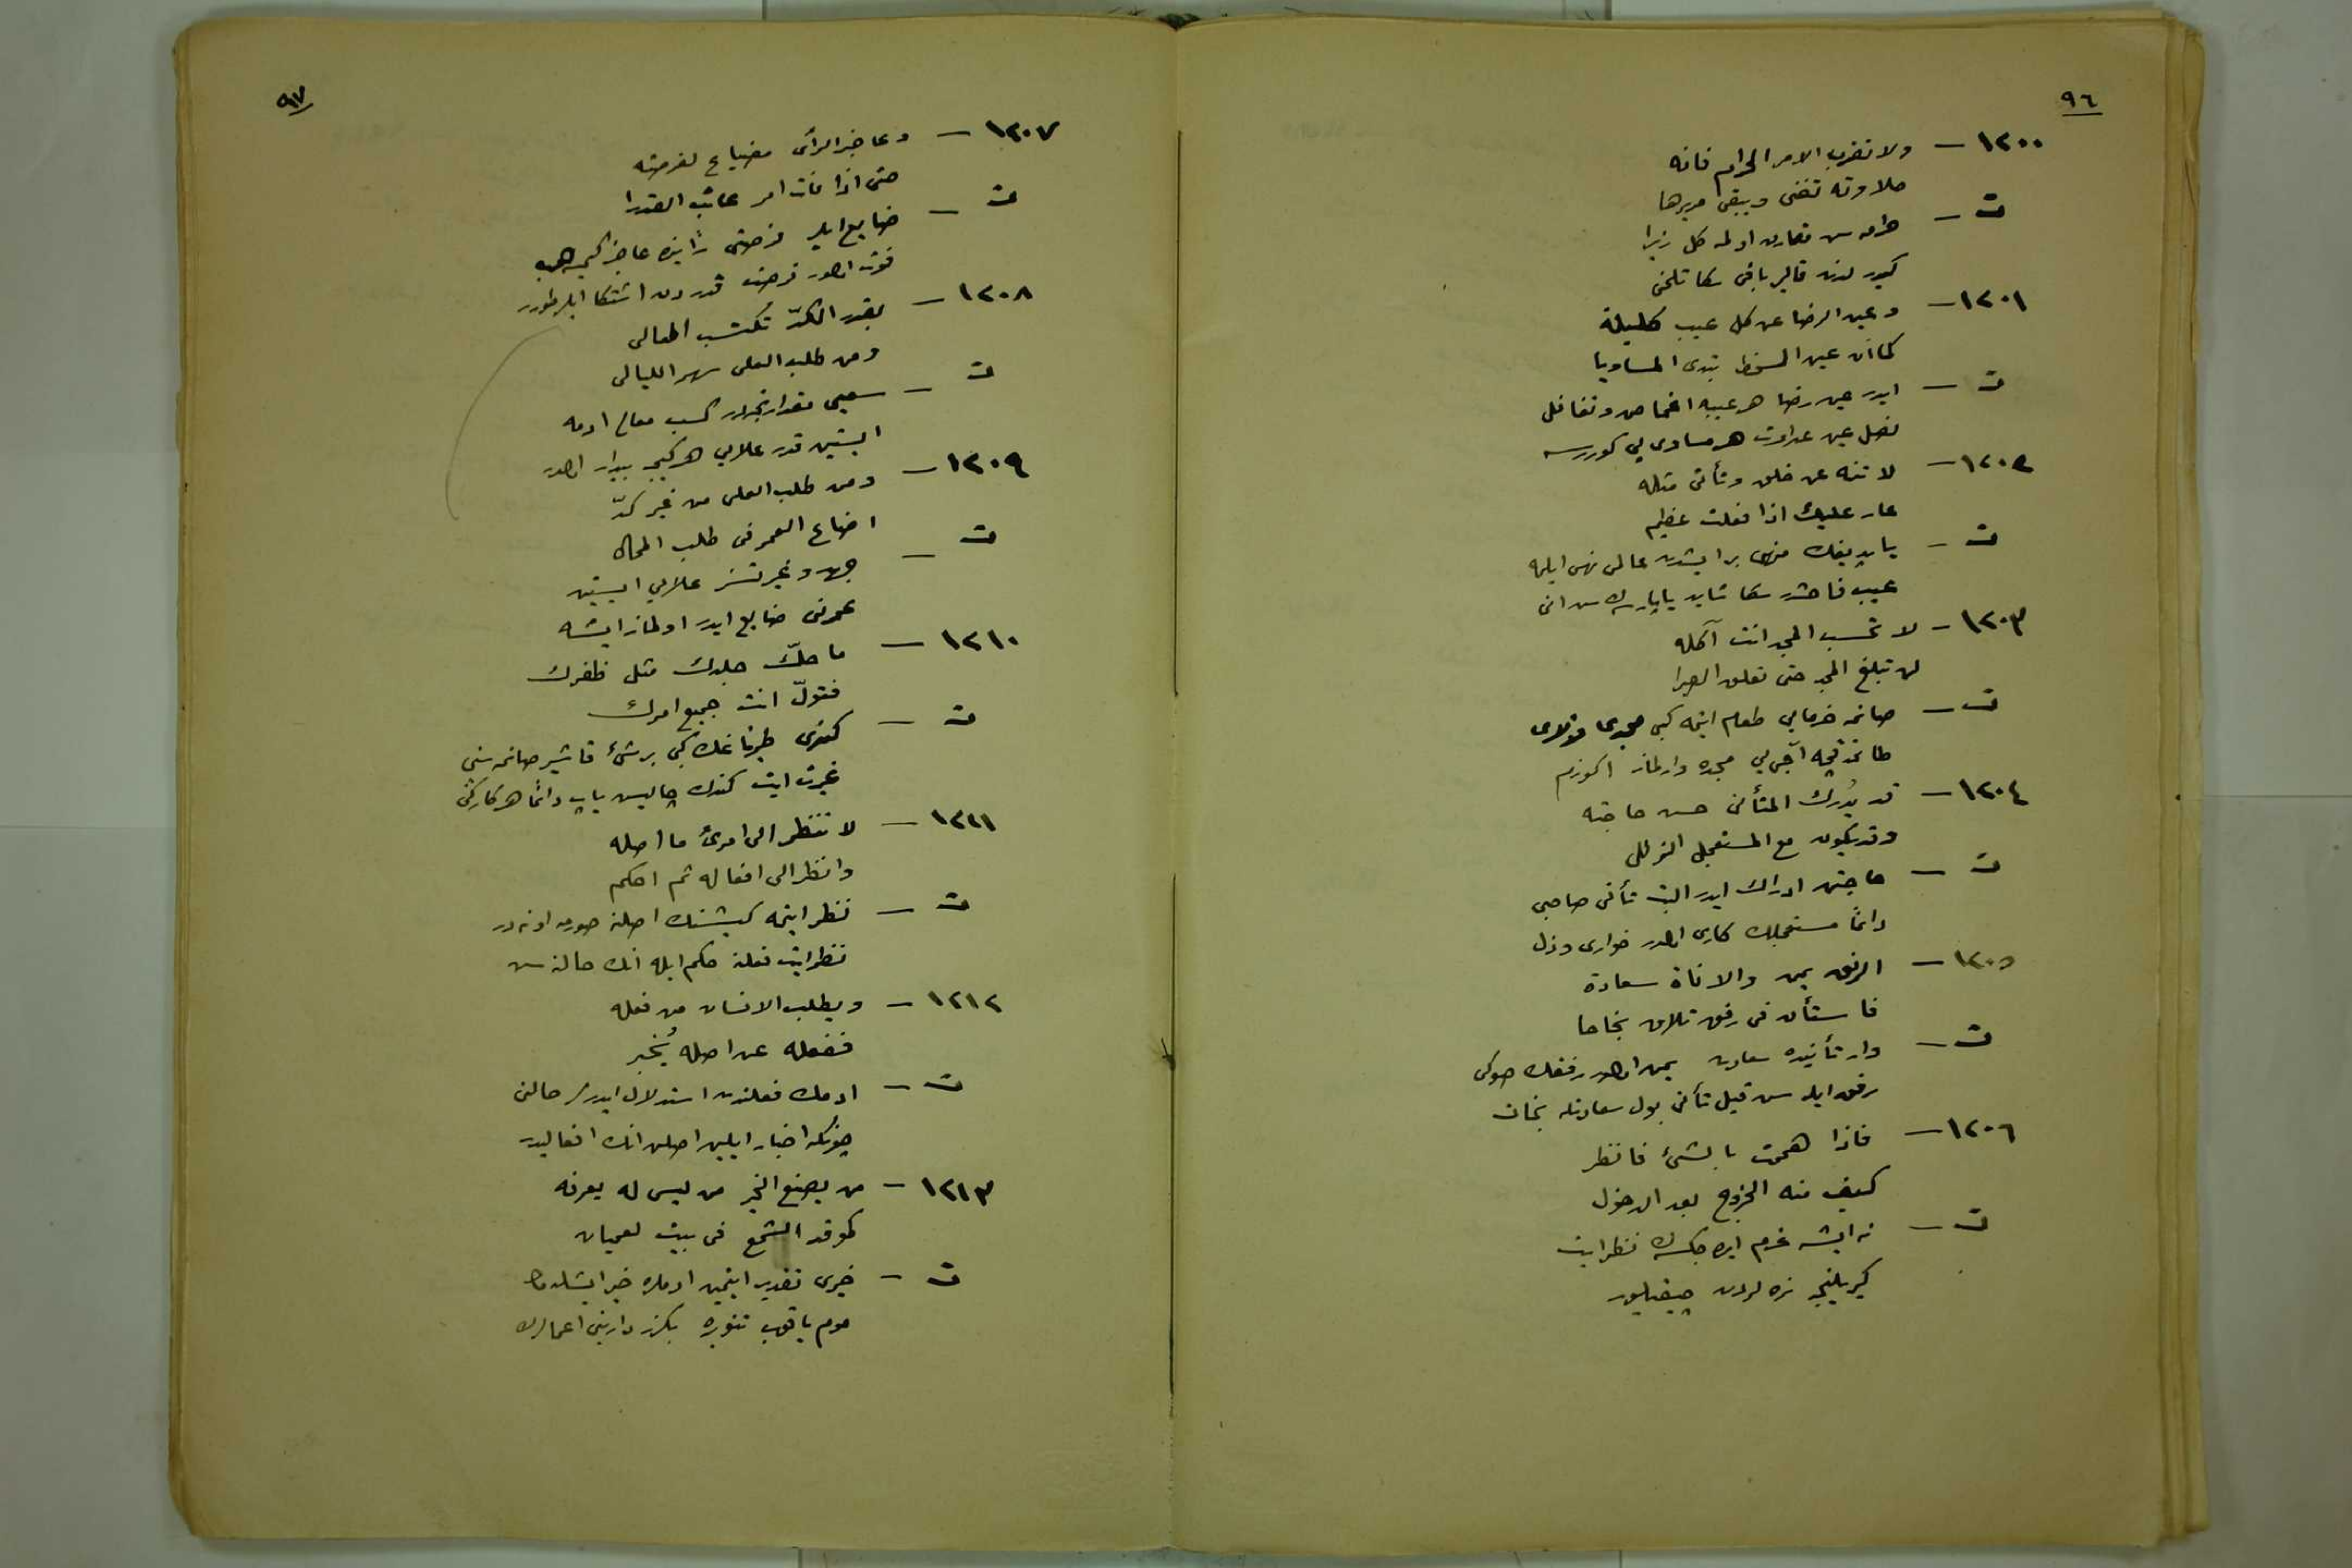 ٩٦
١٢٠٠ — ولا تقرب الامر الحرام فانه
حلاوته تفنى ويبقى مريرها
ت — حرامه سن تقارن اولمه كل زيرا
كچر لذت قالير باقى سكا تلخى
١٢٠١ — وعين الرضا عن كل عيب كليلة
كما ان عين السخط تبدى المساويا
ت — ايدر عين رضا هر عيبه اغماض وتغافل
نصل عين عداوت هر مساوى يى كوررسه
١٢٠٢ — لا تنه عن خلق وتأتى مثله
عار عليك اذا فعلت عظيم
ت — ياپديغك منهى بر ايشدن عالمى نهى ايلمه
عيب فاحشدر سكا شايد ياپارسه‌ڭ سن انى
١٢٠٣ — لا تحسب المجد انت آكله
لن تبلغ المجد حتى تعلق الصبرا
ت — صانمه خرمايى طعام ايتمه كبى مجدى
طاتمدقچه آجى يى مجده وارلماز اكوزم
١٢٠٤ — قد يُدرك المتأنى حسن حاجته
وقد يكون مع المستعجل الزلل
ت — حاجتن ادراك ايدر البت تأنى صاحبى
دائما مستعجلك كارى اولدر خوارى وذل
١٢٠٥ — الرفق يمن والاناة سعادة
فاستأن فى رفق تلاق نجاحا
ت — وار تأنيده سعادت يمن اولور رفقك صوكى
رفق ايله سن قيل تأنى بول سعادتله نجات
١٢٠٦ — فاذا هممت بالشئ فانظر
كيف منه الخروج بعد الدخول
ت — نه ايشه عزم ايده‌جكسه‌ڭ نظر ايت
كيريلنجه نره‌لردن چيقيليور
٩٧
١٢٠٧ — وعاجز الرأى مضياع لفرصته
حتى اذا فات امر عاتب القدرا
ت — ضايع ايلر فرصتى رأينده عاجز كيمسه هپ
فوت اولور فرصت قدردن اشتكا ايلر طورر
١٢٠٨ — بقدر الكدّ تُكتسب المعالى
ومن طلب العلى سهر الليالى
ت — سعيى مقدارنجه‌در كسب معالى ادمه
ايستين قدر علايى هر كيجه بيدار اولور
١٢٠٩ — ومن طلب العلى من غير كدّ
اضاع العمر فى طلب المحال
ت — جهد وغيرتسز علايى ايستين
عمرنى ضايع ايدر اولماز ايشه
١٢١٠ — ما حكّ جلدك مثل ظفرك
فتولّ انت جميع امرك
ت — كندى طرناغك كبى بر شئ قاشير صانمه سنى
غيرت ايت كندك چاليش ياپ دائما هر كاركى
١٢١١ — لا تنظر الى امرئ ما اصله
وانظر الى افعاله ثم احكم
ت — نظر ايتمه كيشينك اصلنه صورمه او نه‌در
نظر ايت فعلنه حكم ايله انك حالنه سن
١٢١٢ — ويطلب الانسان من فعله
ففعله عن اصله يُخبر
ت — ادمك فعلندن استدلال ايدرلر حالنى
چونكه اخبار ايلين اصلن انك افعاليدر
١٢١٣ — من يصنع الخير من ليس له يعرفه
كموقد الشمع فى بيت لعميان
ت — خيرى تقدير ايتمين ادملره خير ايشله‌مك
موم ياقوب تنويره بكزر دارينى اعمالرك